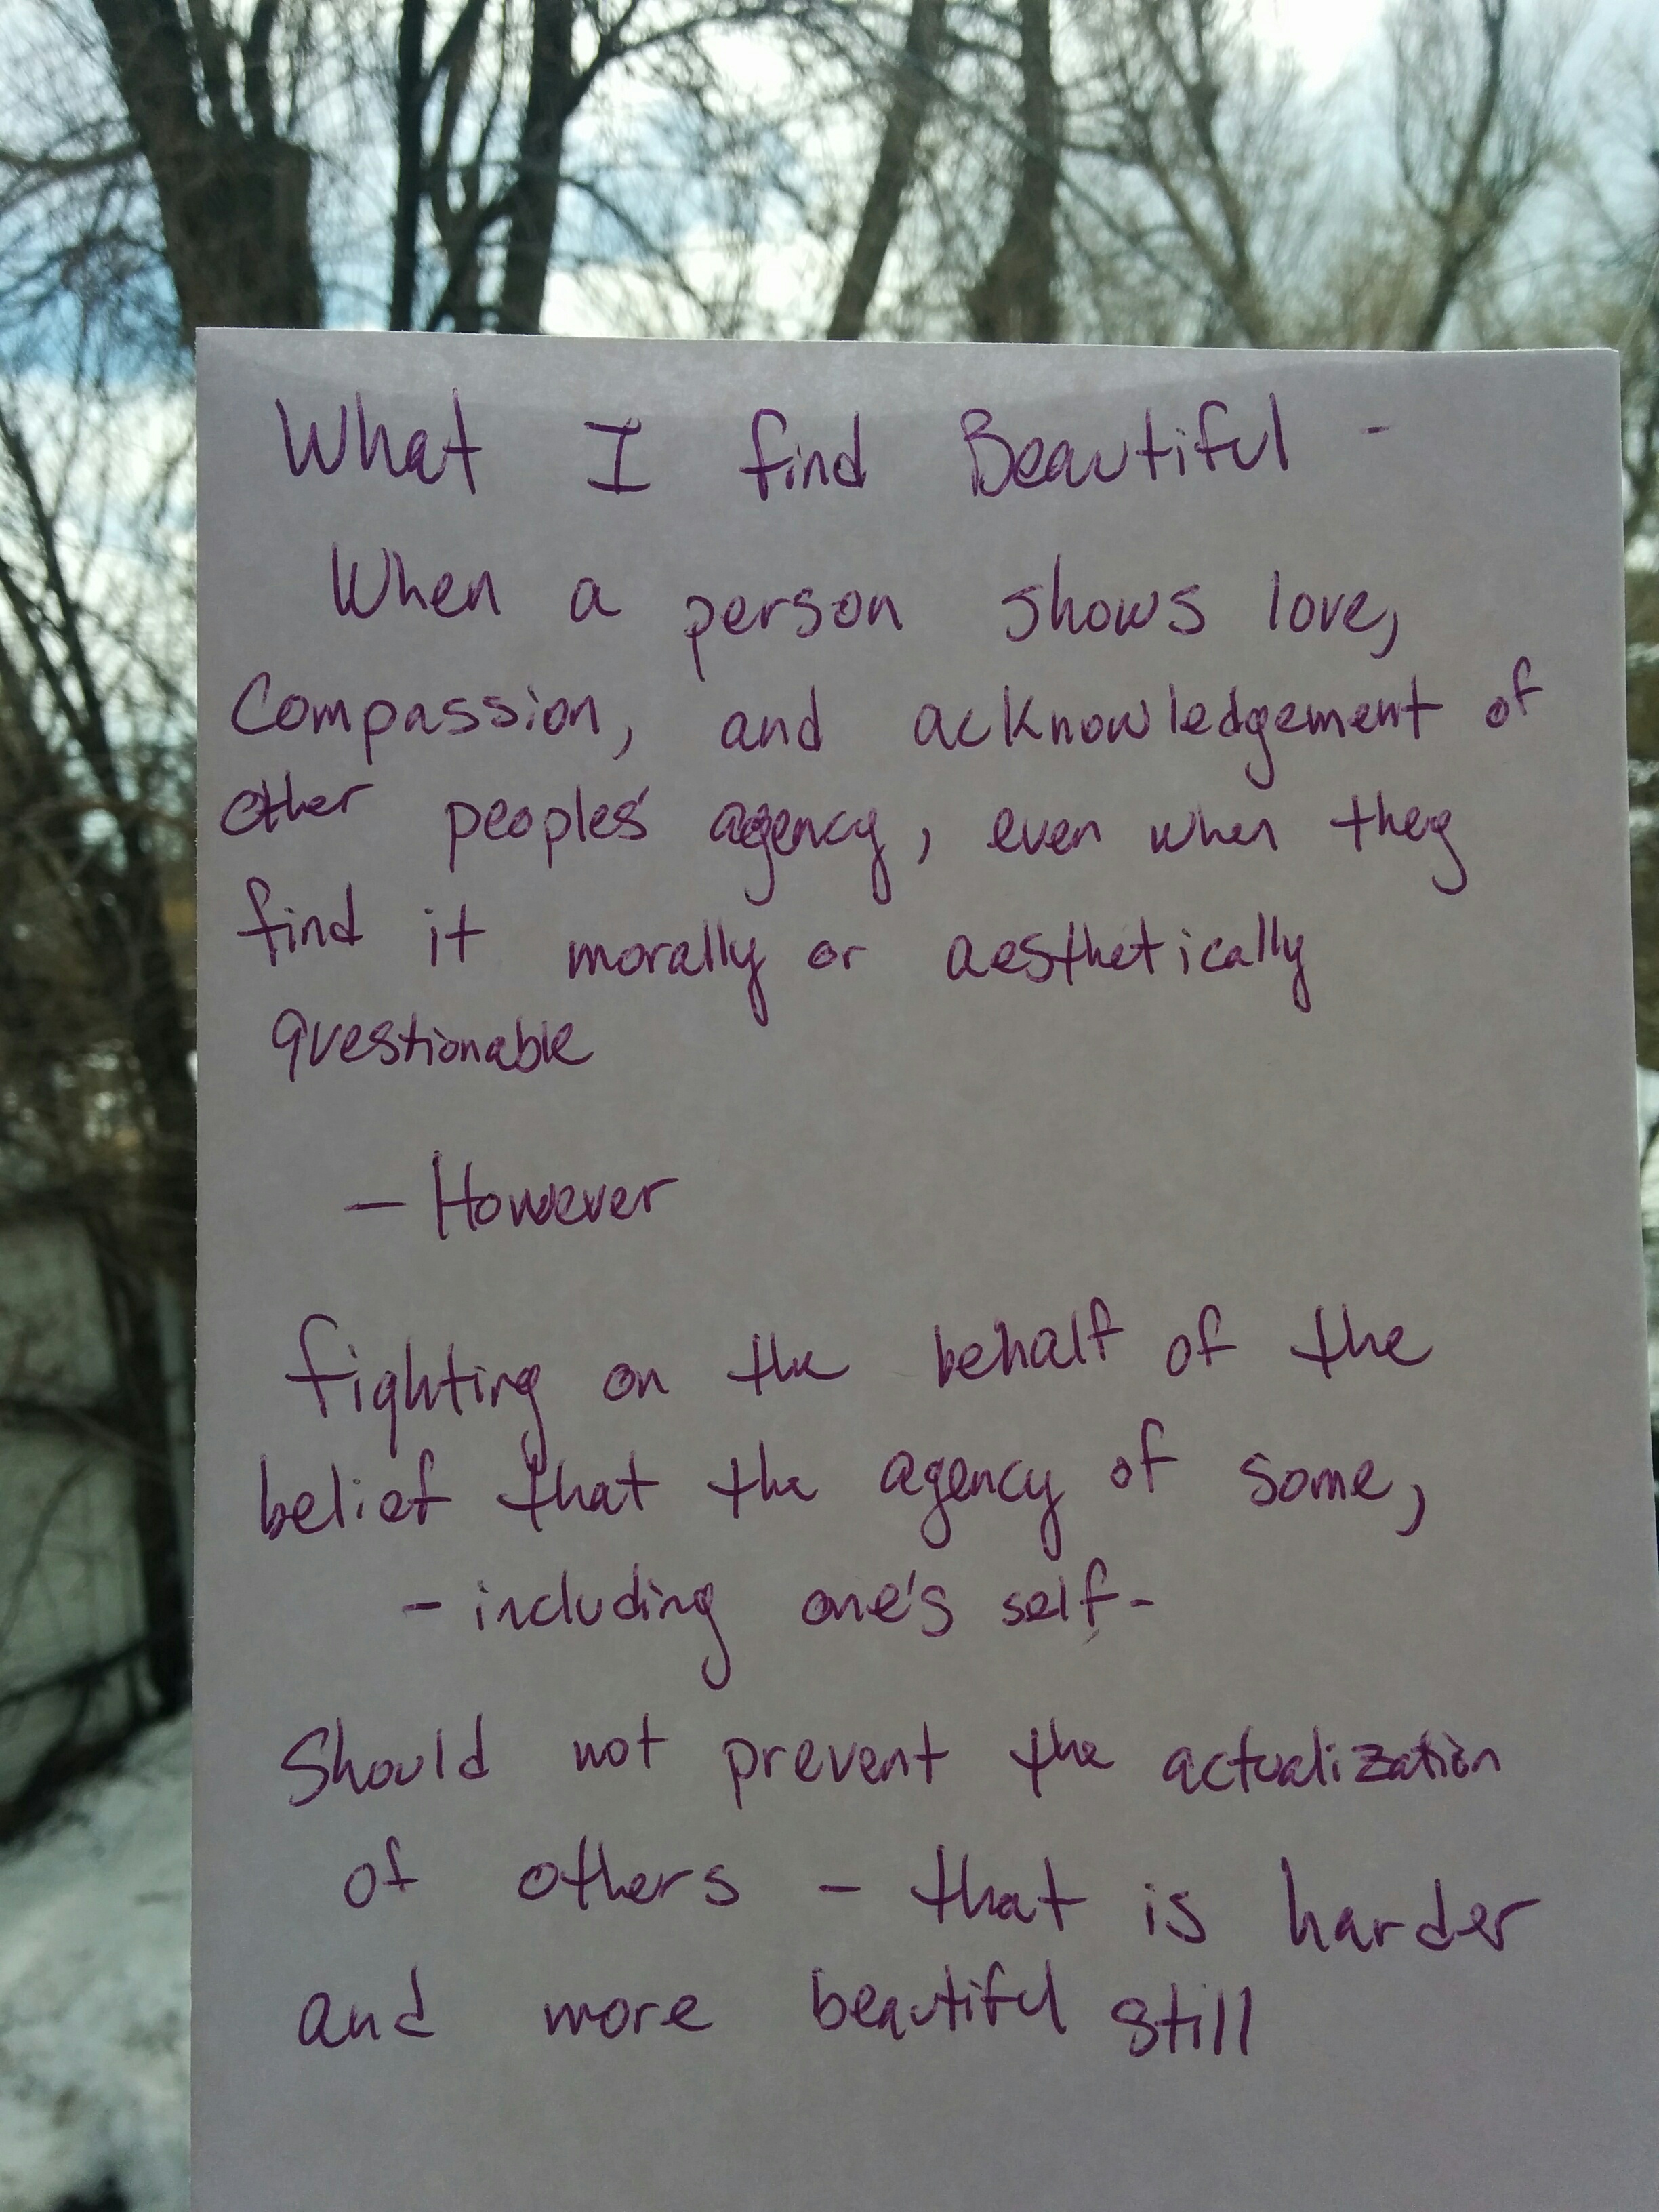 What I find Beautiful -
When a person shows love,
Compassion, and acknowledgement of
other peoples' agency, even when they
find it morally or aesthetically
questionable
- However
fighting on the behalf of the
belief that the agency of some,
- including one's self -
Should not prevent the actualization
of others - that is harder
and more beautiful still